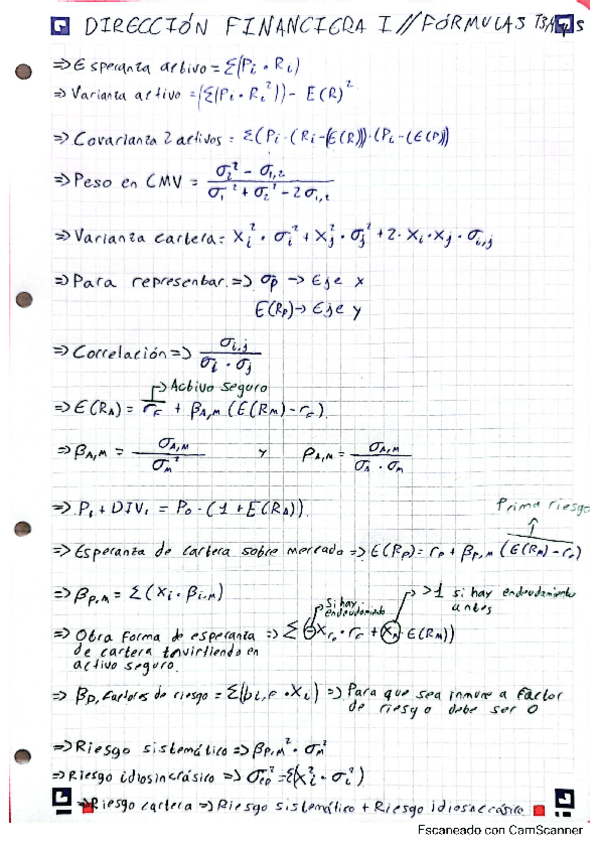 DIRECCIÓN FINANCIERA I // FÓRMULAS
⇒ Esperanza activo = Σ(Pi · Ri)
⇒ Varianza activo = (Σ(Pi · Ri²)) - E(R)²
⇒ Covarianza 2 activos = Σ(Pi · (Ri - (E(R)) · (Pi - (E(P))
⇒ Peso en CMV = σ₂² - σ₁,₂ / σ₁² + σ₂² - 2σ₁,₂
⇒ Varianza cartera = Xi² · σi² + Xj² · σj² + 2 · Xi · Xj · σi,j
⇒ Para representar ⇒ σp → Eje x
E(Rp) → Eje y
⇒ Correlación ⇒ σi,j / σi · σj
Activo seguro
⇒ E(RA) = rF + βA,M (E(RM) - rF)
⇒ βA,M = σA,M / σM² y ρA,M = σA,M / σA · σM
⇒ P₁ + DIV₁ = P₀ · (1 + E(RA))
Prima riesgo
⇒ Esperanza de cartera sobre mercado ⇒ E(Rp) = rF + βp,M (E(RM) - rF)
⇒ βp,M = Σ(Xi · βi,M)
Si hay endeudamiento
>1 si hay endeudamiento antes
⇒ Otra forma de esperanza ⇒ Σ(-XrF · rF + XM · E(RM))
de cartera invirtiendo en
activo seguro.
⇒ βp, Factores de riesgo = Σ(bi,F · Xi) ⇒ Para que sea inmune a Factor
de riesgo debe ser 0
⇒ Riesgo sistemático ⇒ βp,M² · σM²
⇒ Riesgo idiosincrásico ⇒ σep² = Σ(Xi² · σi²)
⇒ Riesgo cartera ⇒ Riesgo sistemático + Riesgo idiosincrásico
Escaneado con CamScanner